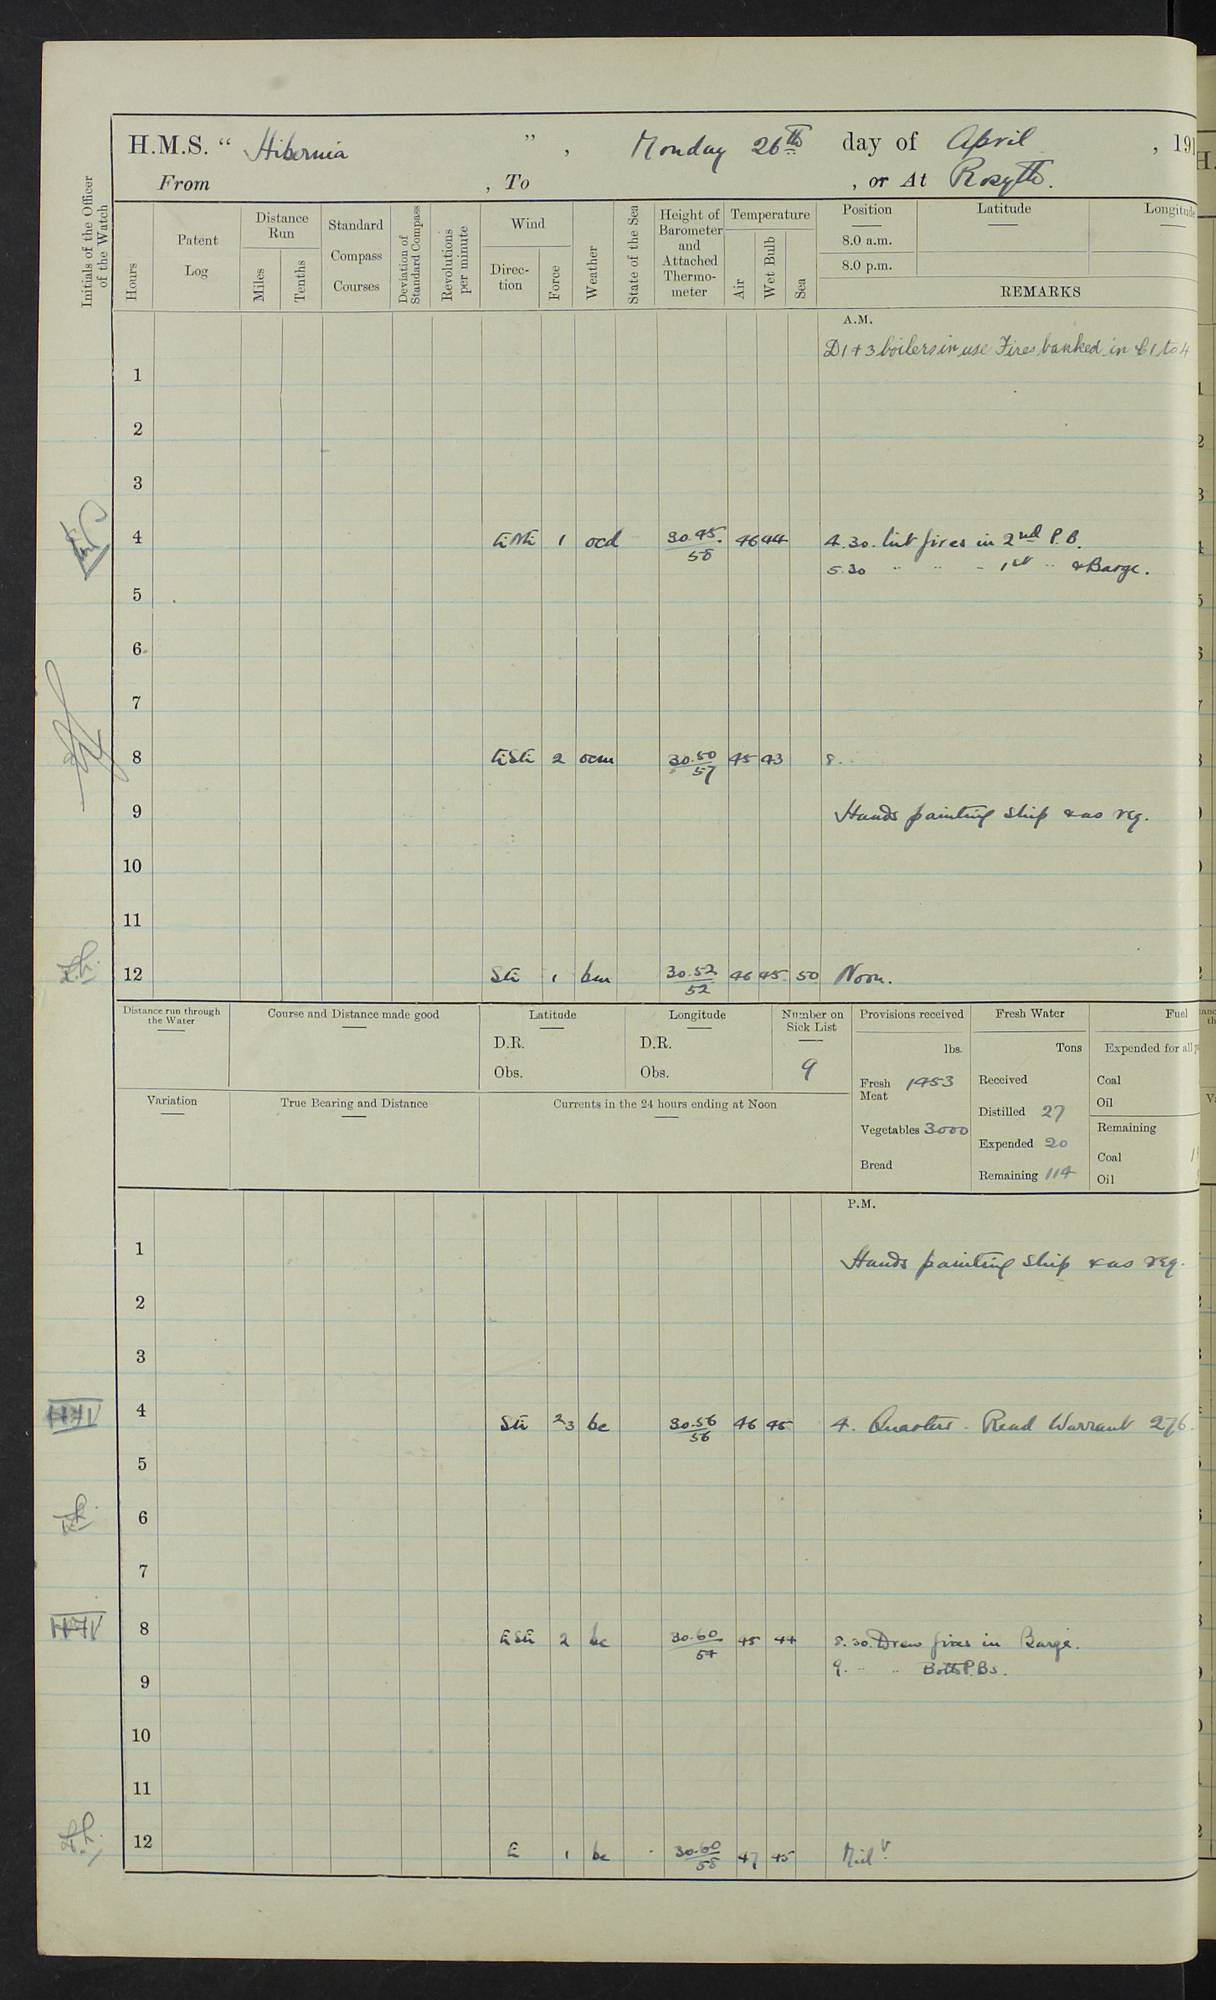 H.M.S. “ Hibernia ” , Monday 26th day of April , 191
From , To , or At Rosyth.
Initials of the Officer of the Watch
Hours
Patent Log
Distance Run
Miles
Tenths
Standard Compass Courses
Deviation of Standard Compass
Revolutions per minute
Wind
Direc-tion
Force
Weather
State of the Sea
Height of Barometer and Attached Thermo-meter
Temperature
Air
Wet Bulb
Sea
Position
8.0 a.m.
8.0 p.m.
Latitude
Longitude
REMARKS
A.M.
D1+3 boilers in use Fires banked in 1 to 4
1
2
3
4 ENE 1 ocd 30.45 46 44 4.30. Lit fires in 2nd P.B.
58
5.30 " " - 1st " & Barge.
5
6
7
8 ESE 2 ocm 30.50 45 43 8.
57
9 Hands painting ship & as req.
10
11
12 SE 1 bm 30.52 46 45 50 Noon.
52
Distance run through the Water
Course and Distance made good
Latitude
D.R.
Obs.
Longitude
D.R.
Obs.
Number on Sick List
9
Provisions received
lbs.
Fresh Meat 1453
Vegetables 3000
Bread
Fresh Water
Tons
Received
Distilled 27
Expended 20
Remaining 114
Fuel
Expended for all
Coal
Oil
Remaining
Coal
Oil
Variation
True Bearing and Distance
Currents in the 24 hours ending at Noon
P.M.
1 Hands painting ship & as req.
2
3
4 SE 2/3 bc 30.56 46 45 4. Quarters - Read Warrant 276.
56
5
6
7
8 ESE 2 bc 30.60 45 44 8.30. Drew fires in Barge.
54
9. " " Both P.Bs.
9
10
11
12 E 1 bc 30.60 47 45 Midt
58